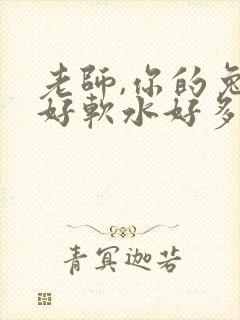 老師,你的兔
好軟水好多
青冥迦若